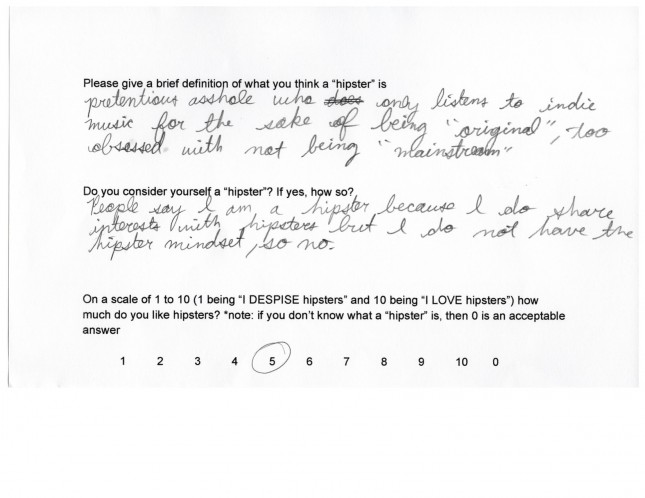 Please give a brief definition of what you think a "hipster" is
pretentious asshole who does only listens to indie
music for the sake of being "original", too
obsessed with not being "mainstream"
Do you consider yourself a "hipster"? If yes, how so?
People say I am a hipster because I do share
interests with hipsters but I do not have the
hipster mindset, so no.
On a scale of 1 to 10 (1 being "I DESPISE hipsters" and 10 being "I LOVE hipsters") how
much do you like hipsters? *note: if you don't know what a "hipster" is, then 0 is an acceptable
answer
1 2 3 4 5 6 7 8 9 10 0